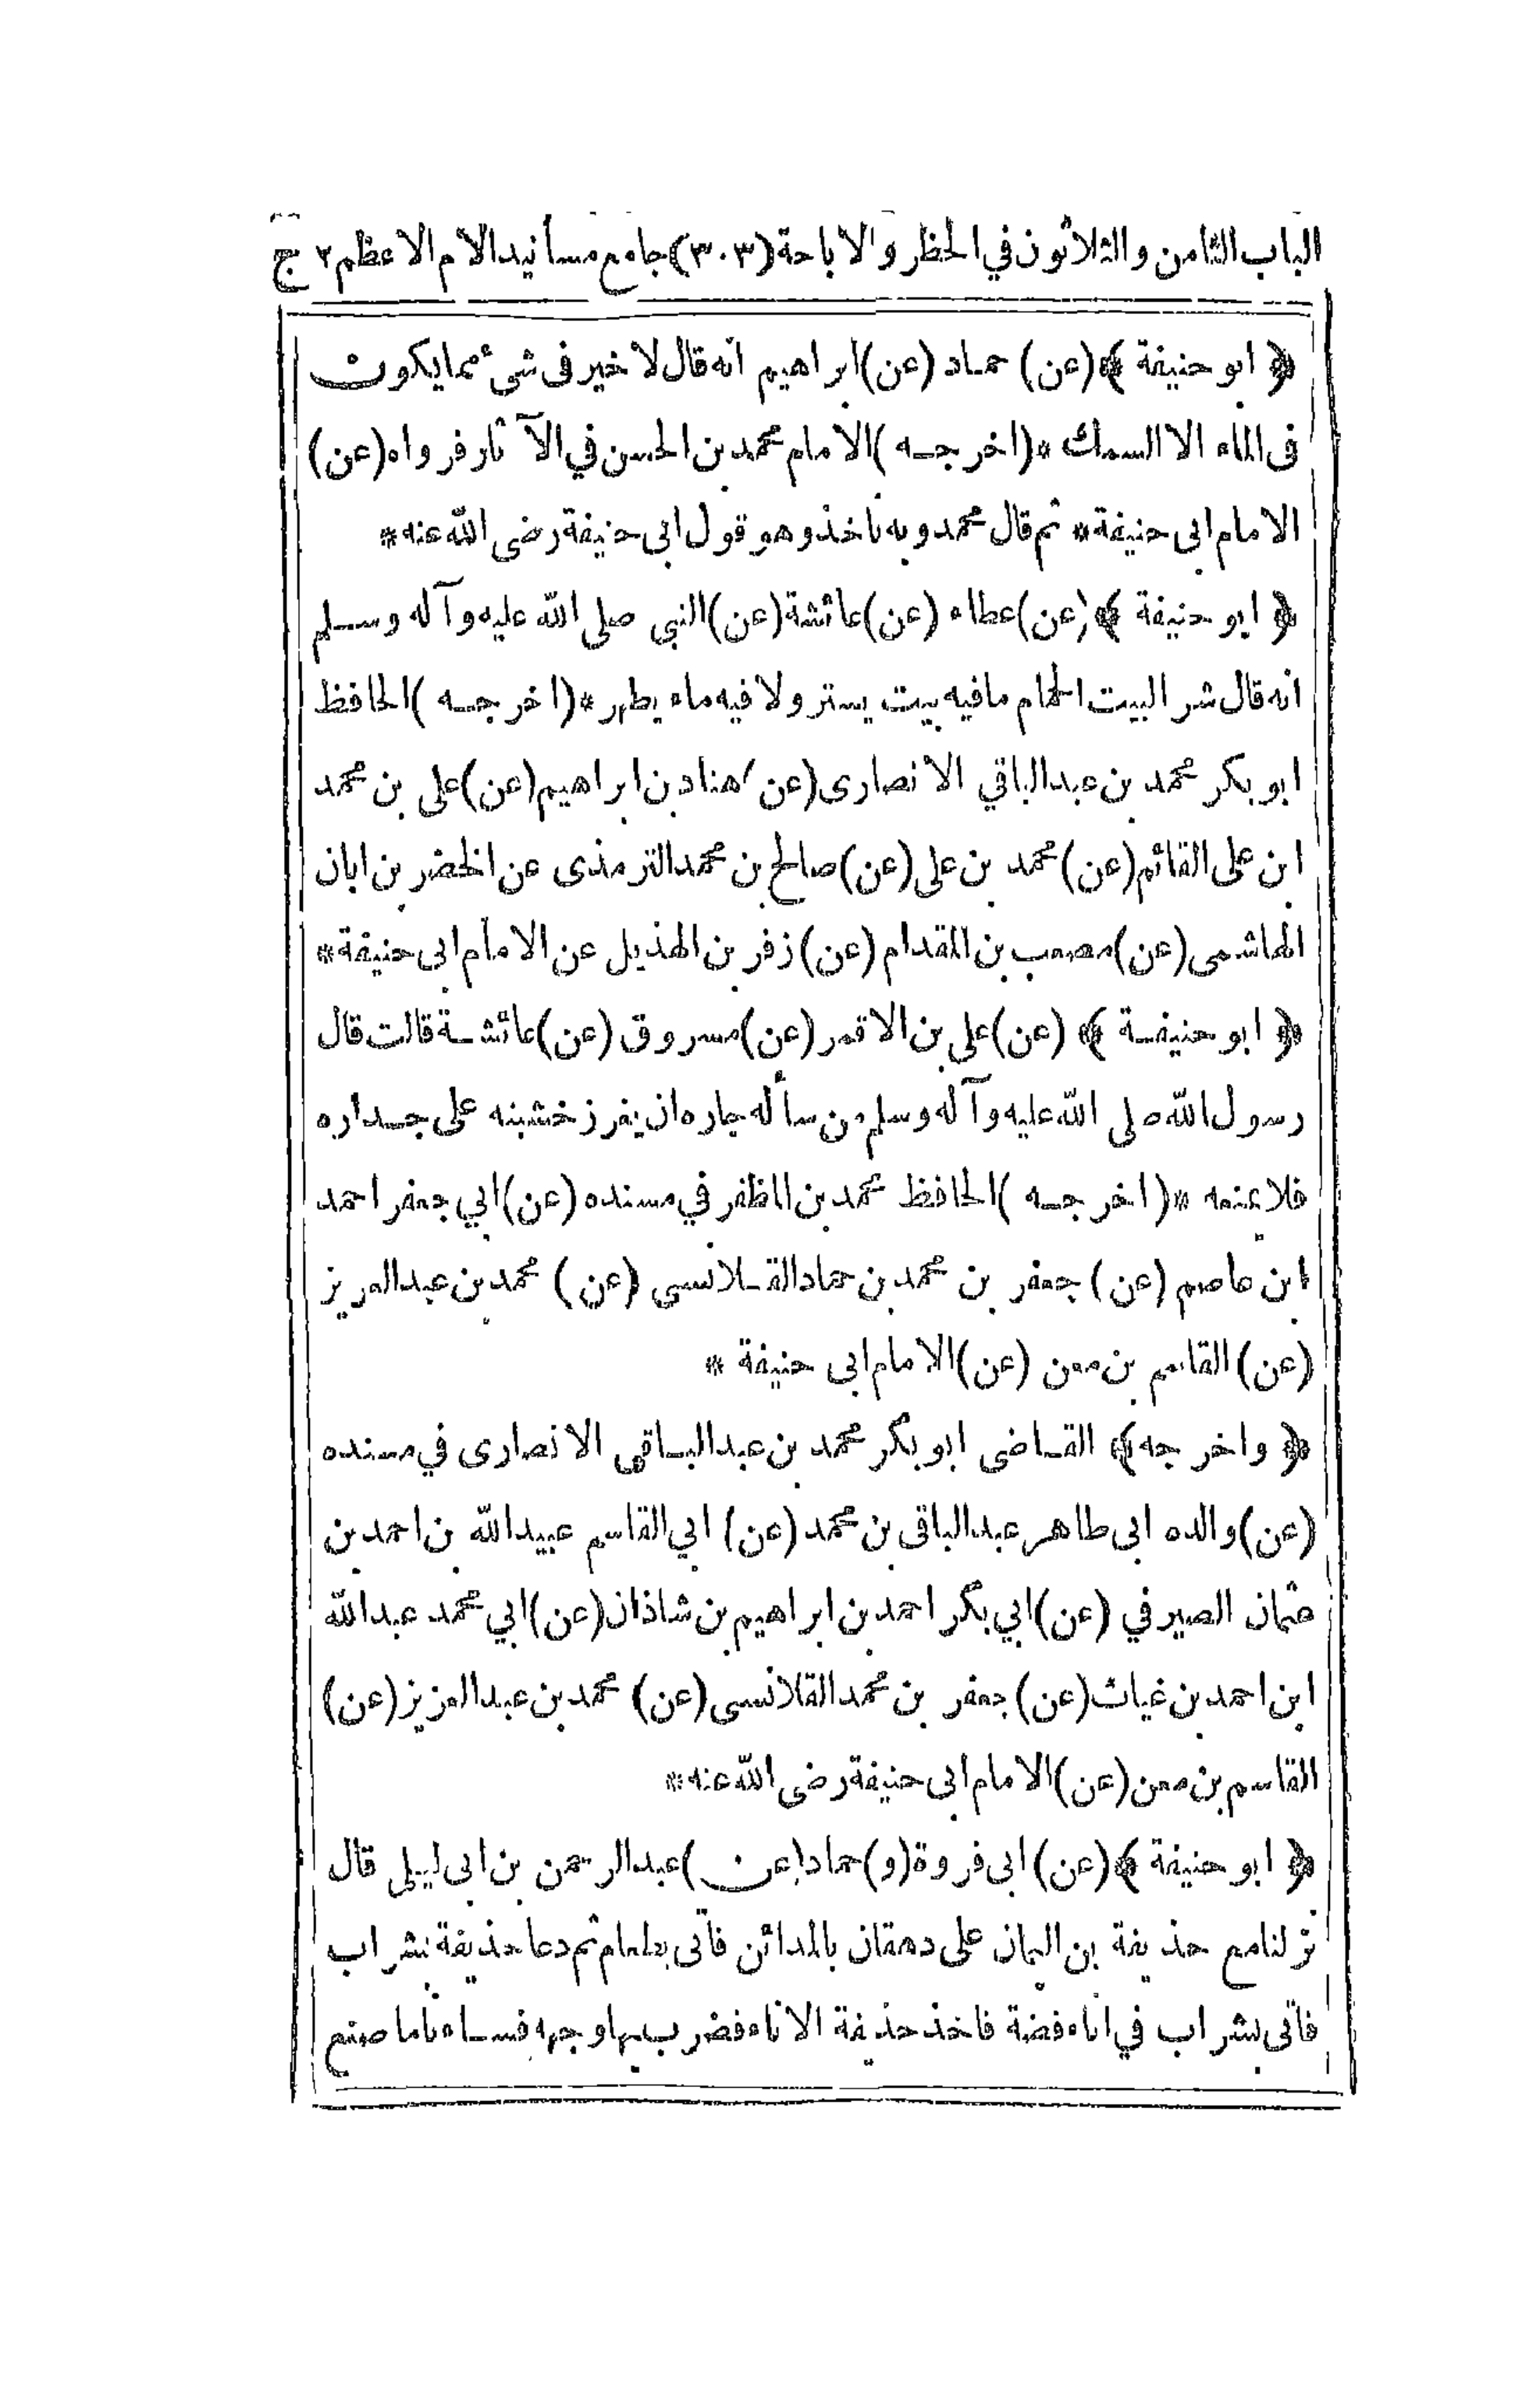 الباب الثامن والثلاثون في الحظر والاباحة (٣٠٣) جامع مسانيد الامام الاعظم ٢ ج
﴿ ابو حنيفة ﴾ (عن) حماد (عن) ابراهيم انه قال لا خير فى شىء مما يكون
فى الماء الا السمك * (اخرجه) الامام محمد بن الحسن في الآثار فرواه (عن)
الامام ابى حنيفة * ثم قال محمد وبه ناخذ وهو قول ابى حنيفة رضى الله عنه *
﴿ ابو حنيفة ﴾ (عن) عطاء (عن) عائشة (عن) النبى صلى الله عليه وآله وسلم
انه قال شر البيت الحمام مافيه بيت يستر ولا فيه ماء يطهر * (اخرجه) الحافظ
ابو بكر محمد بن عبدالباقي الانصارى (عن) هناد بن ابراهيم (عن) على بن محمد
ابن على القائم (عن) محمد بن على (عن) صالح بن محمد الترمذى عن الخضر بن ابان
الهاشمى (عن) مصعب بن المقدام (عن) زفر بن الهذيل عن الامام ابى حنيفة *
﴿ ابو حنيفة ﴾ (عن) على بن الاقمر (عن) مسروق (عن) عائشة قالت قال
رسول الله صلى الله عليه وآله وسلم من سأله جاره ان يغرز خشبته على جداره
فلا يمنعه * (اخرجه) الحافظ محمد بن المظفر في مسنده (عن) ابي جعفر احمد
ابن عاصم (عن) جعفر بن محمد بن حماد القلانسى (عن) محمد بن عبدالعزيز
(عن) القاسم بن معن (عن) الامام ابى حنيفة *
﴿ واخرجه ﴾ القاضى ابو بكر محمد بن عبدالباقى الانصارى في مسنده
(عن) والده ابى طاهر عبدالباقى بن محمد (عن) ابي القاسم عبيدالله بن احمد بن
عثمان الصيرفي (عن) ابي بكر احمد بن ابراهيم بن شاذان (عن) ابي محمد عبدالله
ابن احمد بن غياث (عن) جعفر بن محمد القلانسى (عن) محمد بن عبدالعزيز (عن)
القاسم بن معن (عن) الامام ابى حنيفة رضى الله عنه *
﴿ ابو حنيفة ﴾ (عن) ابى فروة (و) حماد (عن) عبدالرحمن بن ابى ليلى قال
نزلنا مع حذيفة بن اليمان على دهقان بالمدائن فأتى بطعام ثم دعا حذيفة بشراب
فأتى بشراب في اناء فضة فاخذ حذيفة الاناء فضرب بها وجهه فساءنا ما صنع